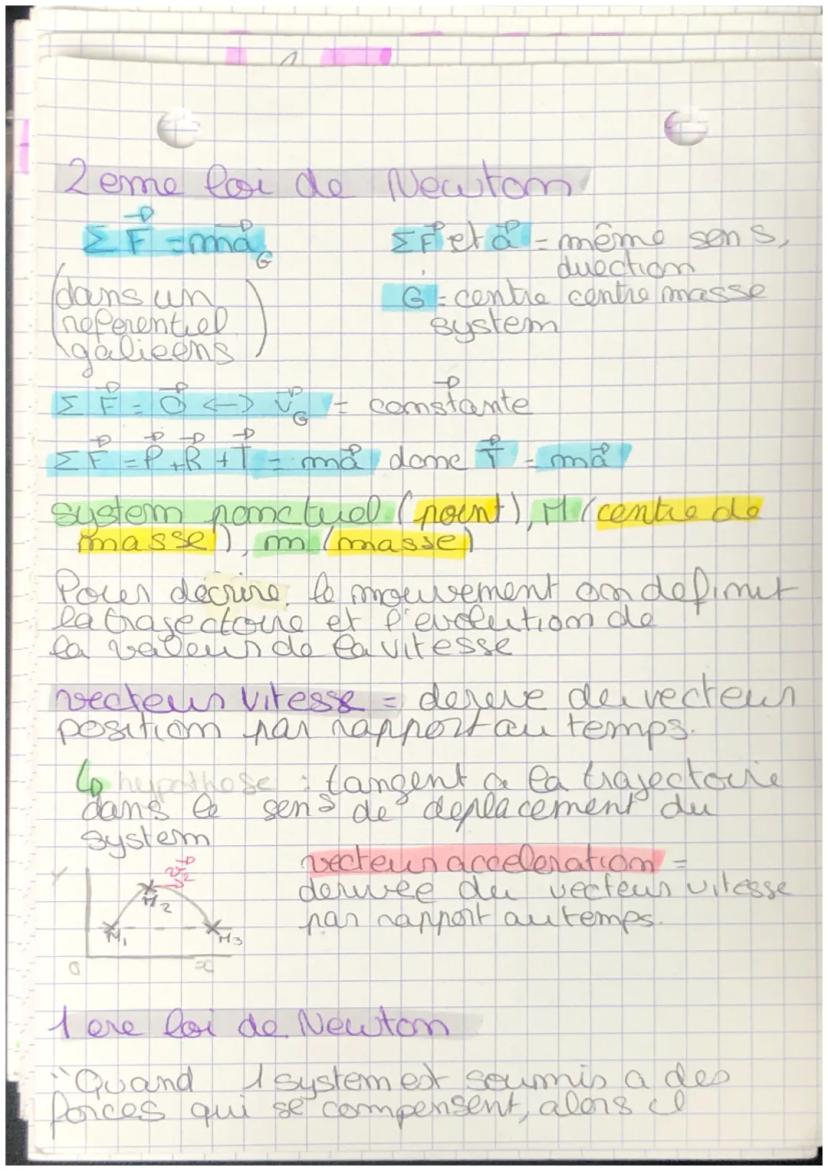 2 eme loi de Newton
ΣF⃗ = ma⃗_G
(dans un
referentiel
galieens)
ΣF⃗ et a⃗ = même sens,
duection
G = centre centre masse
system
ΣF⃗ = 0⃗ <-> v⃗_G = constante
ΣF⃗ = P⃗ + R⃗ + T⃗ = ma⃗ donc T⃗ = ma⃗
system ponctuel (point), M (centre de
masse), m (masse)
Pour decrire le mouvement on definit
la trajectoire et l'evolution de
la valeur de la vitesse
vecteur vitesse = derive du vecteur
position par rapport au temps.
↳ hypothose : tangent a la trajectoire
dans le sens de deplacement du
system
Y
v⃗2
M2
M1
M3
O
x
vecteur acceleration =
derivee du vecteur vitesse
par rapport au temps.
1 ere loi de Newton
"Quand 1 system est soumis a des
forces qui se compensent, alors il